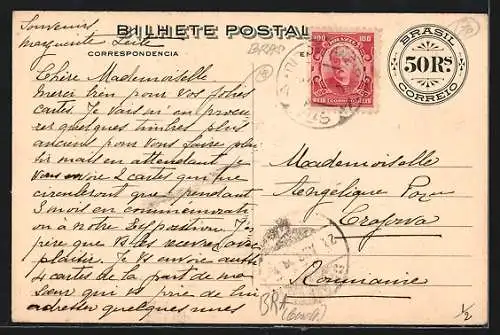 Souvenirs
Marguerite Leite
BILHETE POSTAL
CORRESPONDENCIA
BRASIL
50 RS.
CORREIO
100 BRAZIL 100
Chère Mademoiselle
Merci bien pour vos jolies
cartes. Je vais voir procurer
quelques timbres plus
anciens pour vous faire plai-
sir mais en attendant je
vous envoie 2 cartes qui ne
circuleront que pendant
3 mois en commémoration
à notre Exposition. J'es
père que vs les recevrez avec
plaisir. Je vs envoie aussi
4 cartes de la part de ma
sœur qui vs prie de lui
adresser quelques unes
Mademoiselle
Angélique
Crajova
Roumanie
BRA
1/2